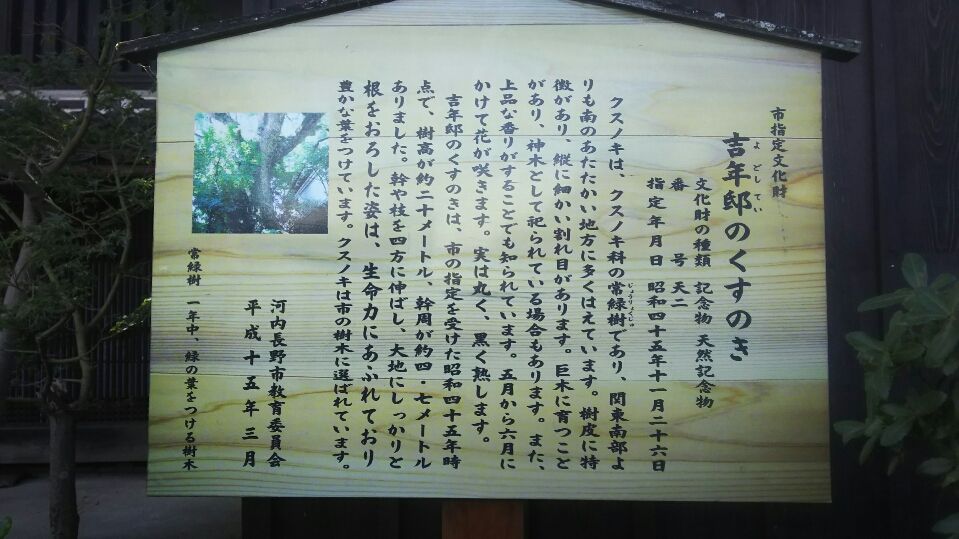 市指定文化財
吉年邸のくすのき
よどしてい
文化財の種類 記念物 天然記念物
番号 天二
指定年月日 昭和四十五年十一月二十六日
クスノキは、クスノキ科の常緑樹であり、関東南部よ
じょうりょくじゅ
りも南のあたたかい地方に多くはえています。樹皮に特
徴があり、縦に細かい割れ目があります。巨木に育つこと
があり、神木として祀られている場合もあります。また、
上品な香りがすることでも知られています。五月から六月に
かけて花が咲きます。実は丸く、黒く熟します。
吉年邸のくすのきは、市の指定を受けた昭和四十五年時
点で、樹高が約二十メートル、幹周が約四・七メートル
ありました。幹や枝を四方に伸ばし、大地にしっかりと
根をおろした姿は、生命力にあふれており
豊かな葉をつけています。クスノキは市の樹木に選ばれています。
河内長野市教育委員会
平成十五年三月
常緑樹 一年中、緑の葉をつける樹木